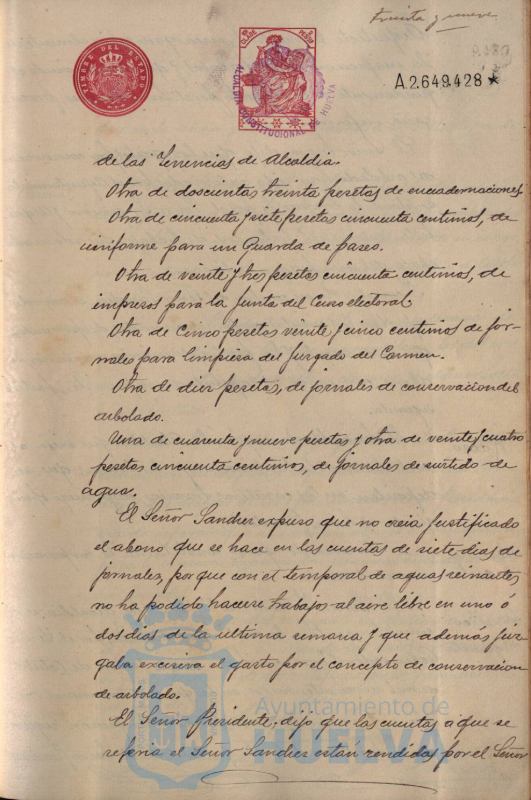 treinta y nueve
TIMBRE DEL ESTADO
ALCALDIA CONSTITUCIONAL DE HUELVA
A.2.649.428 ★
de las Tenencias de Alcaldia.
Otra de doscientas treinta pesetas de encuadernaciones.
Otra de cincuenta y siete pesetas cincuenta centimos, de
uniforme para un Guarda de paseo.
Otra de veinte y tres pesetas cincuenta centimos, de
impresos para la Junta del Censo electoral.
Otra de Cinco pesetas veinte y cinco centimos de jor-
nales para limpiesa del Juzgado del Carmen.
Otra de diez pesetas, de jornales de conservacion del
arbolado.
Una de cuarenta y nueve pesetas y otra de veinte y cuatro
pesetas cincuenta centimos, de jornales de surtido de
agua.
El Señor Sanchez expuso que no creia justificado
el abono que se hace en las cuentas de siete dias de
jornales, por que con el temporal de aguas reinantes
no ha podido hacerse trabajos al aire libre en uno ó
dos dias de la ultima semana y que además juz-
gaba excesiva el gasto por el concepto de conservacion
de arbolado.
El Señor Presidente dijo que las cuentas a que se
referia el Señor Sanchez estan rendidas por el Señor
Ayuntamiento de
HUELVA